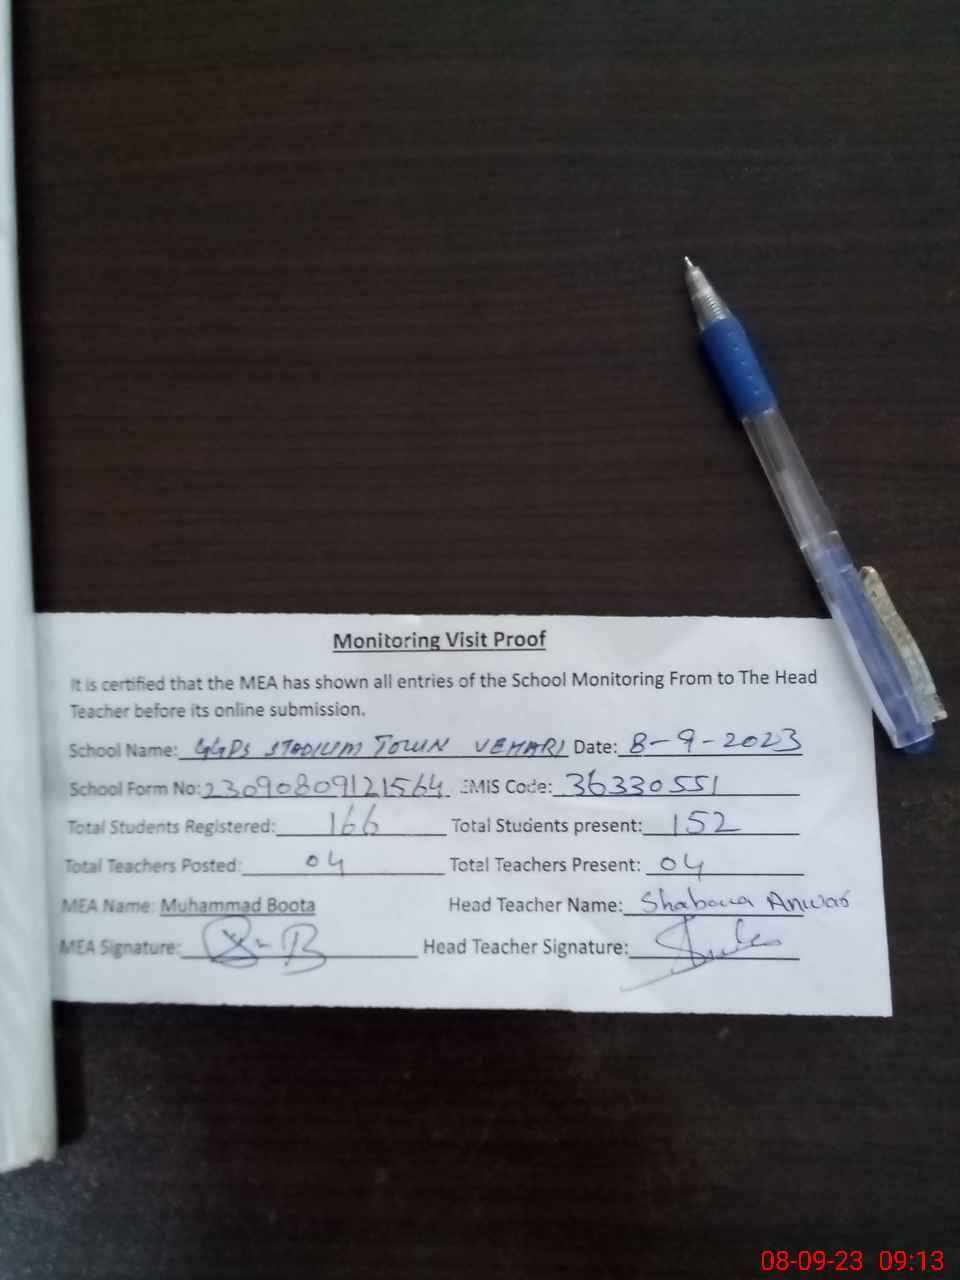 Monitoring Visit Proof
It is certified that the MEA has shown all entries of the School Monitoring From to The Head
Teacher before its online submission.
School Name: GGPS STADIUM TOWN VEHARI Date: 8-9-2023
School Form No: 23090809121564 EMIS Code: 36330551
Total Students Registered: 166 Total Students present: 152
Total Teachers Posted: 04 Total Teachers Present: 04
MEA Name: Muhammad Boota Head Teacher Name: Shabana Anwar
MEA Signature: Head Teacher Signature:
08-09-23 09:13